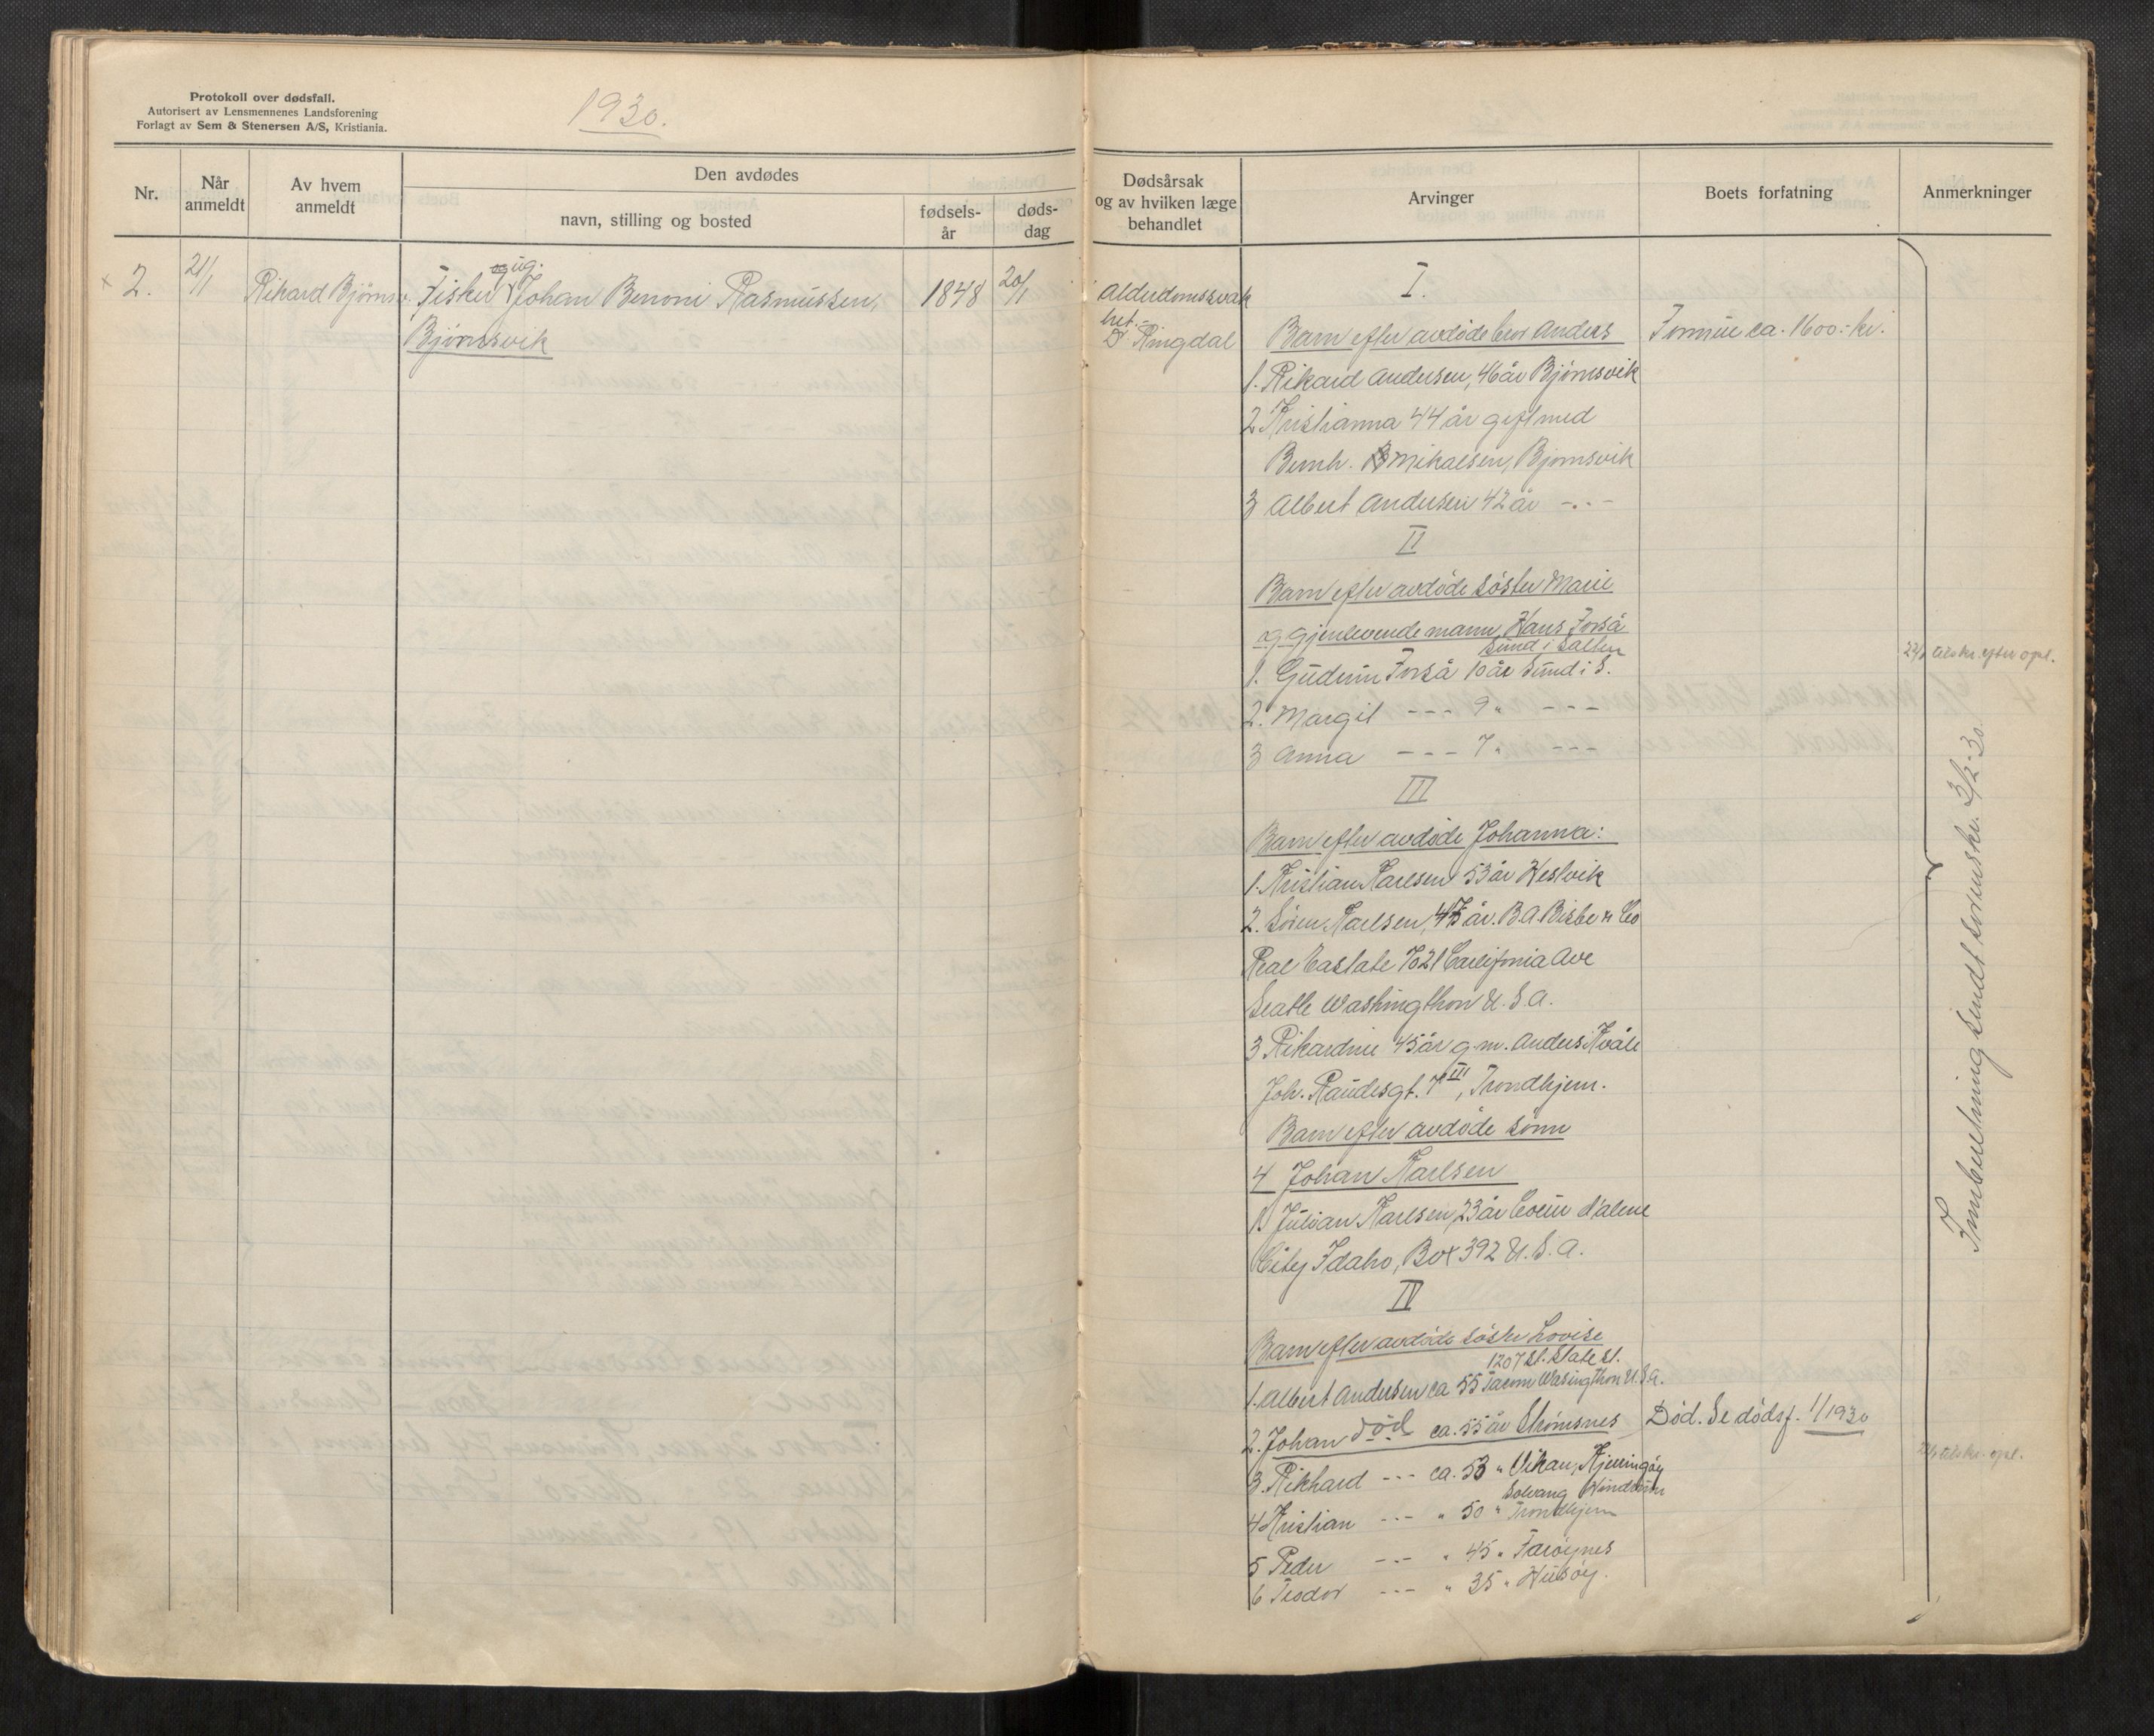 Protokoll over dødsfall.
Autorisert av Lensmennenes Landsforening
Forlagt av Sem & Stenersen A/S, Kristiania.
1930.
Nr.
Når anmeldt
Av hvem anmeldt
Den avdødes
navn, stilling og bosted
fødsels-år
døds-dag
Dødsårsak og av hvilken læge behandlet
Arvinger
Boets forfatning
Anmerkninger
2.
21/1
Rikard Bjørnsv.
ug.
Fisker Johan Benoni Rasmussen,
Bjørnsvik
1848
20/1
Alderdomssvak
het.-
Dr Ringdal
I.
Barn efter avdøde bror Anders
Formue ca. 1600.- kr.
1. Rikard Andersen, 46 år Bjørnsvik
2 Kristianna 44 år gift med
Bernh. Mikalsen, Bjørnsvik
3 Albert Andersen 42 år -.-
II
Barn efter avdøde søster Marie
og gjenlevende mann, Hans Forså
Sund i Salten
1. Gudrun Forså 10 år Sund i S.
2. Margit --- 9 " ---
3 Anna --- 7 " ---
III
Barn efter avdøde Johanna:
1. Kristian Karlsen 53 år Hestvik
2. Søren Karlsen, 47 år. B.A. Bisbe & Co
Real Eastate 7021 Califonia Ave
Seatle Washingthon U.S.A.
3 Rikardine 45 år g.m. Anders Kvåle
Joh. Raudesgt. 7 III, Trondhjem.
Barn efter avdøde sønn
4 Johan Karlsen
1. Julian Karlsen, 23 år Coeur d'alene
City Idaho, Box 392 U.S.A.
IV
Barn efter avdøde søster Lovise
1207 St. State St.
1. Albert Andersen ca 55 Tacom Wasingthon U.S.A.
2. Johan død ca. 55 år Strømsnes
Død. Se dødsf. 1/1930
3. Rikhard --- ca. 53 " Vikan, Kjerringøy
Solvang
4 Kristian --- " 50 " Trondhjem
5 Peder --- " 45 " Farøynes
6 Teodor --- " 35 " Husøy.
Innberetning sendt sorenskr. 3/2-30